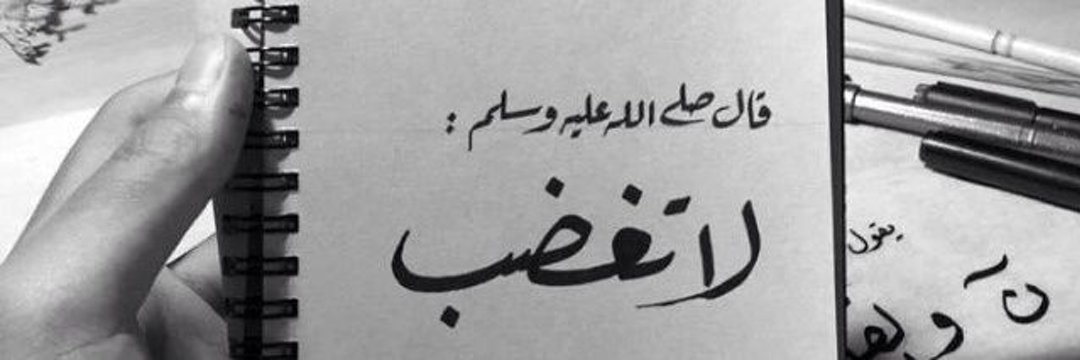 قال صلى الله عليه وسلم :
لا تغضب
يقول